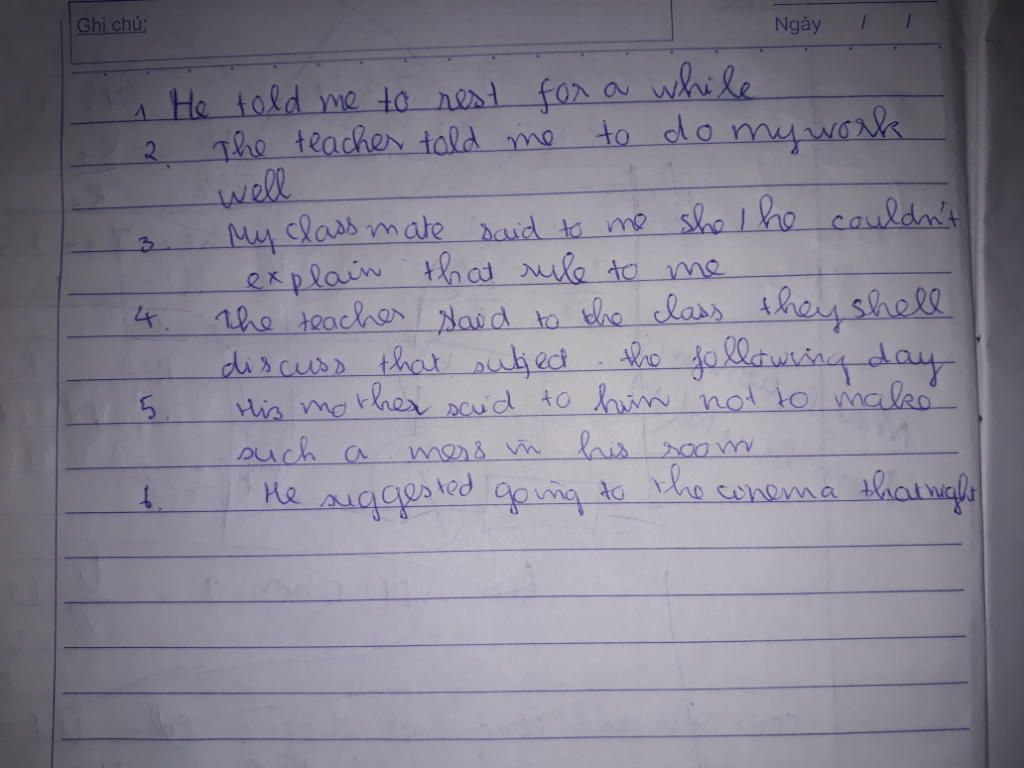 Ghi chú:
Ngày / /
1 He told me to rest for a while
2. The teacher told me to do my work
well
3. My classmate said to me she / he couldn't
explain that rule to me
4. The teacher said to the class they shell
discuss that subject the following day
5. His mother said to him not to make
such a mess in his room
6. He suggested going to the cinema that night